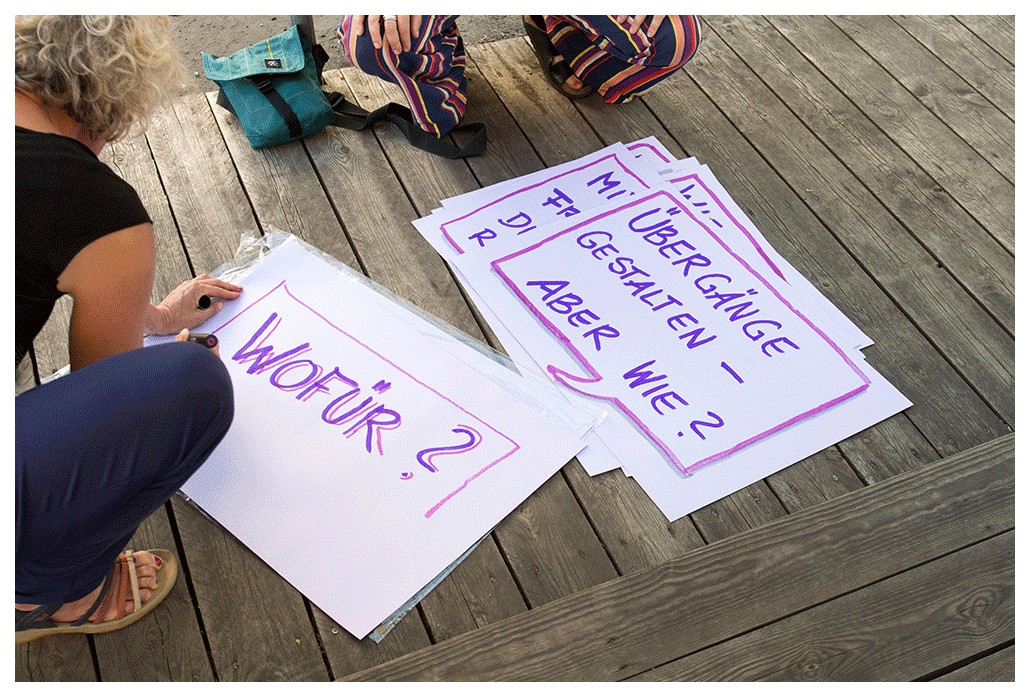 WOFÜR?
ÜBERGÄNGE
GESTALTEN –
ABER WIE?
MI
FR
DI
R
WI